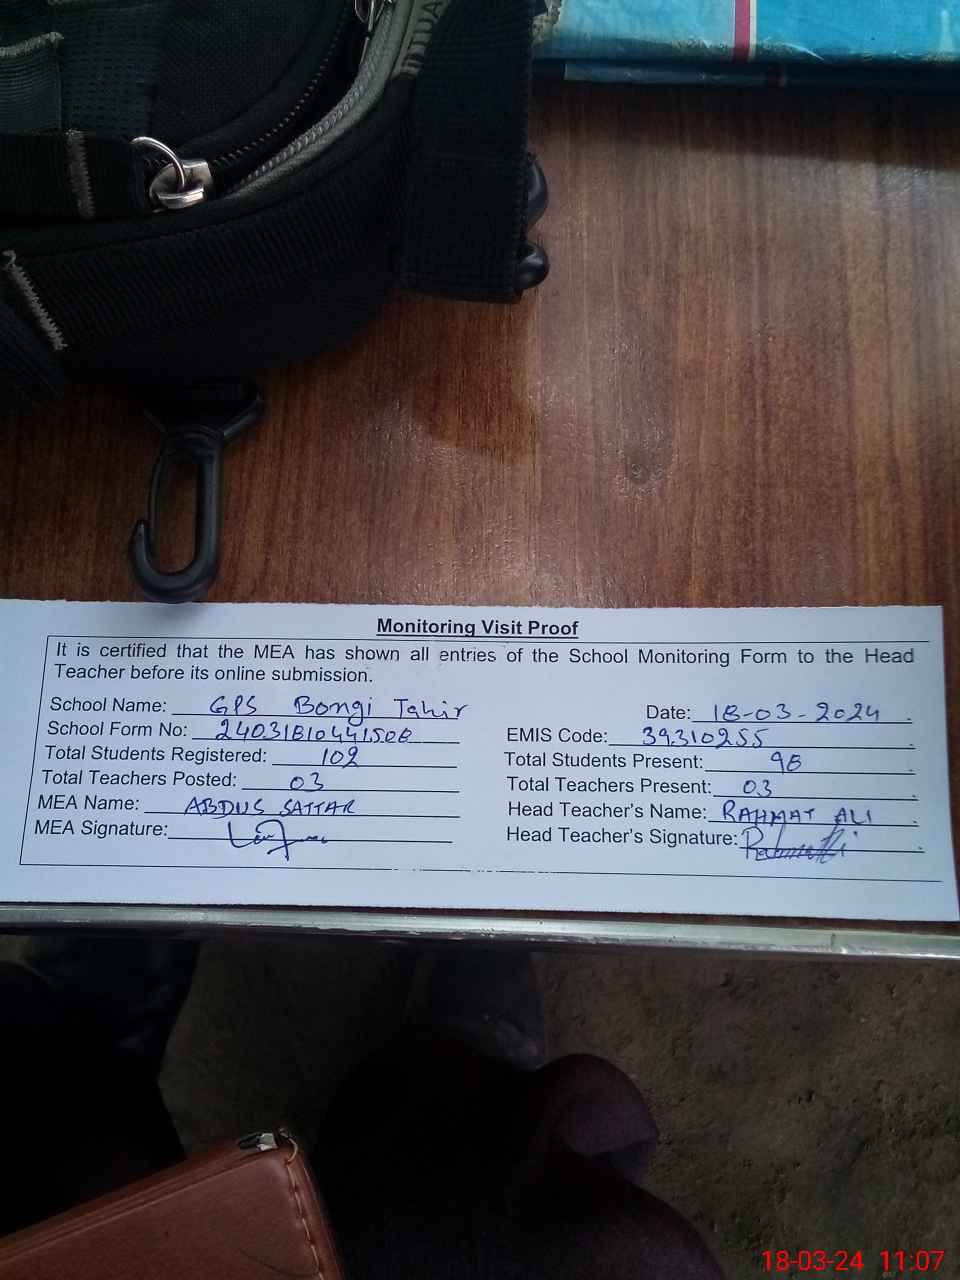 Monitoring Visit Proof
It is certified that the MEA has shown all entries of the School Monitoring Form to the Head
Teacher before its online submission.
School Name: GPS Bongi Tahir
Date: 18-03-2024
School Form No:
EMIS Code: 39310255
Total Students Registered: 102
Total Students Present: 98
Total Teachers Posted: 03
Total Teachers Present: 03
MEA Name: ABDUS SATTAR
Head Teacher's Name: RAHMAT ALI
MEA Signature:
Head Teacher's Signature:
18-03-24 11:07